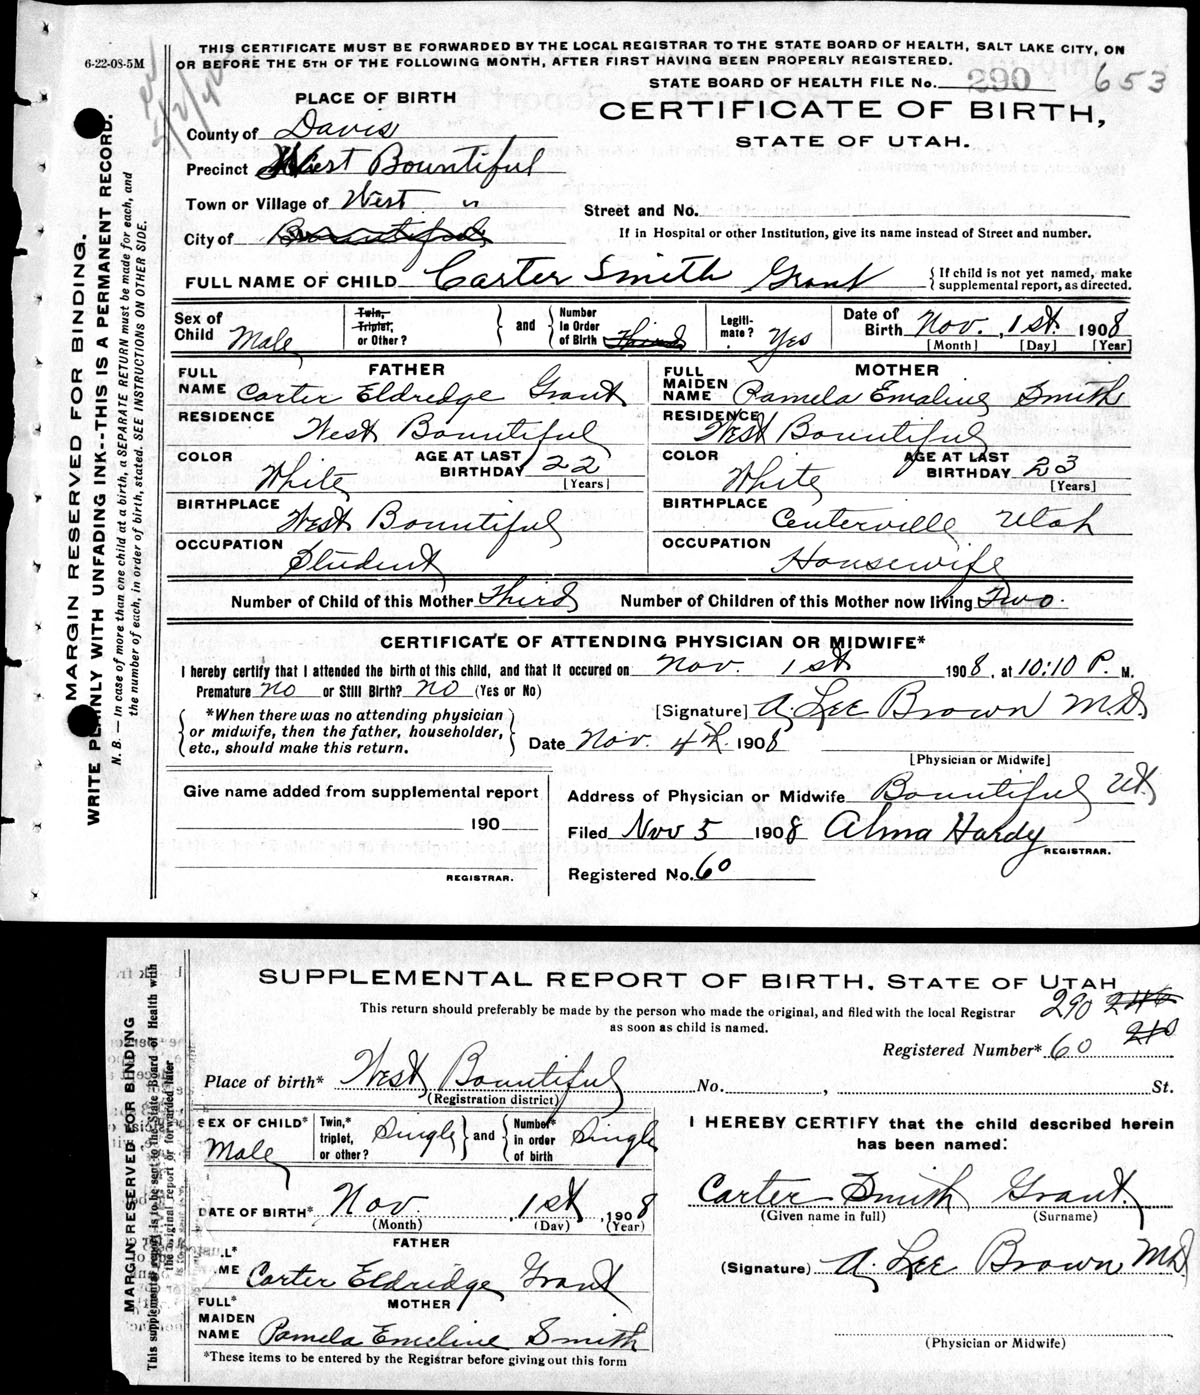 6-22-08-5M
THIS CERTIFICATE MUST BE FORWARDED BY THE LOCAL REGISTRAR TO THE STATE BOARD OF HEALTH, SALT LAKE CITY, ON
OR BEFORE THE 5TH OF THE FOLLOWING MONTH, AFTER FIRST HAVING BEEN PROPERLY REGISTERED.
STATE BOARD OF HEALTH FILE No. 290 653
PLACE OF BIRTH
CERTIFICATE OF BIRTH,
STATE OF UTAH.
County of Davis
Precinct West Bountiful
Town or Village of West "
Street and No.
City of Bountiful
If in Hospital or other Institution, give its name instead of Street and number.
FULL NAME OF CHILD Carter Smith Grant {If child is not yet named, make
supplemental report, as directed.
Sex of Child Male Twin, Triplet, or Other? } and { Number In Order of Birth Third Legiti-mate? Yes Date of Birth Nov. 1st. 1908
[Month] [Day] [Year]
FATHER
FULL NAME Carter Eldredge Grant
RESIDENCE West Bountiful
COLOR White AGE AT LAST BIRTHDAY 22
[Years]
BIRTHPLACE West Bountiful
OCCUPATION Student
MOTHER
FULL MAIDEN NAME Pamela Emaline Smith
RESIDENCE West Bountiful
COLOR White AGE AT LAST BIRTHDAY 23
[Years]
BIRTHPLACE Centerville Utah
OCCUPATION Housewife
Number of Child of this Mother Third Number of Children of this Mother now living Two.
CERTIFICATE OF ATTENDING PHYSICIAN OR MIDWIFE*
I hereby certify that I attended the birth of this child, and that it occured on Nov. 1st 1908, at 10:10 P. M.
Premature no or Still Birth? no (Yes or No)
{ *When there was no attending physician
or midwife, then the father, householder,
etc., should make this return. }
[Signature] A. Lee Brown M.D.
Date Nov. 4th. 1908
[Physician or Midwife]
Give name added from supplemental report
190
REGISTRAR.
Address of Physician or Midwife Bountiful Ut.
Filed Nov 5 1908 Alma Hardy
REGISTRAR.
Registered No. 60
MARGIN RESERVED FOR BINDING.
WRITE PLAINLY WITH UNFADING INK--THIS IS A PERMANENT RECORD.
N. B.—In case of more than one child at a birth, a SEPARATE RETURN must be made for each, and
the number of each, in order of birth, stated. SEE INSTRUCTIONS ON OTHER SIDE.
SUPPLEMENTAL REPORT OF BIRTH, STATE OF UTAH
This return should preferably be made by the person who made the original, and filed with the local Registrar
as soon as child is named.
290
Registered Number* 60
Place of birth* West Bountiful No. , St.
(Registration district)
SEX OF CHILD* Male Twin,* triplet, or other? Single } and { Number* in order of birth Single
DATE OF BIRTH* Nov. 1st, 1908
(Month) (Day) (Year)
FATHER
Carter Eldridge Grant
MOTHER
FULL* MAIDEN NAME Pamela Emeline Smith
*These items to be entered by the Registrar before giving out this form
I HEREBY CERTIFY that the child described herein
has been named:
Carter Smith Grant.
(Given name in full) (Surname)
(Signature) A. Lee Brown MD
(Physician or Midwife)
MARGIN RESERVED FOR BINDING
This supplemental report is to be sent to the State Board of Health with
the original report or forwarded later